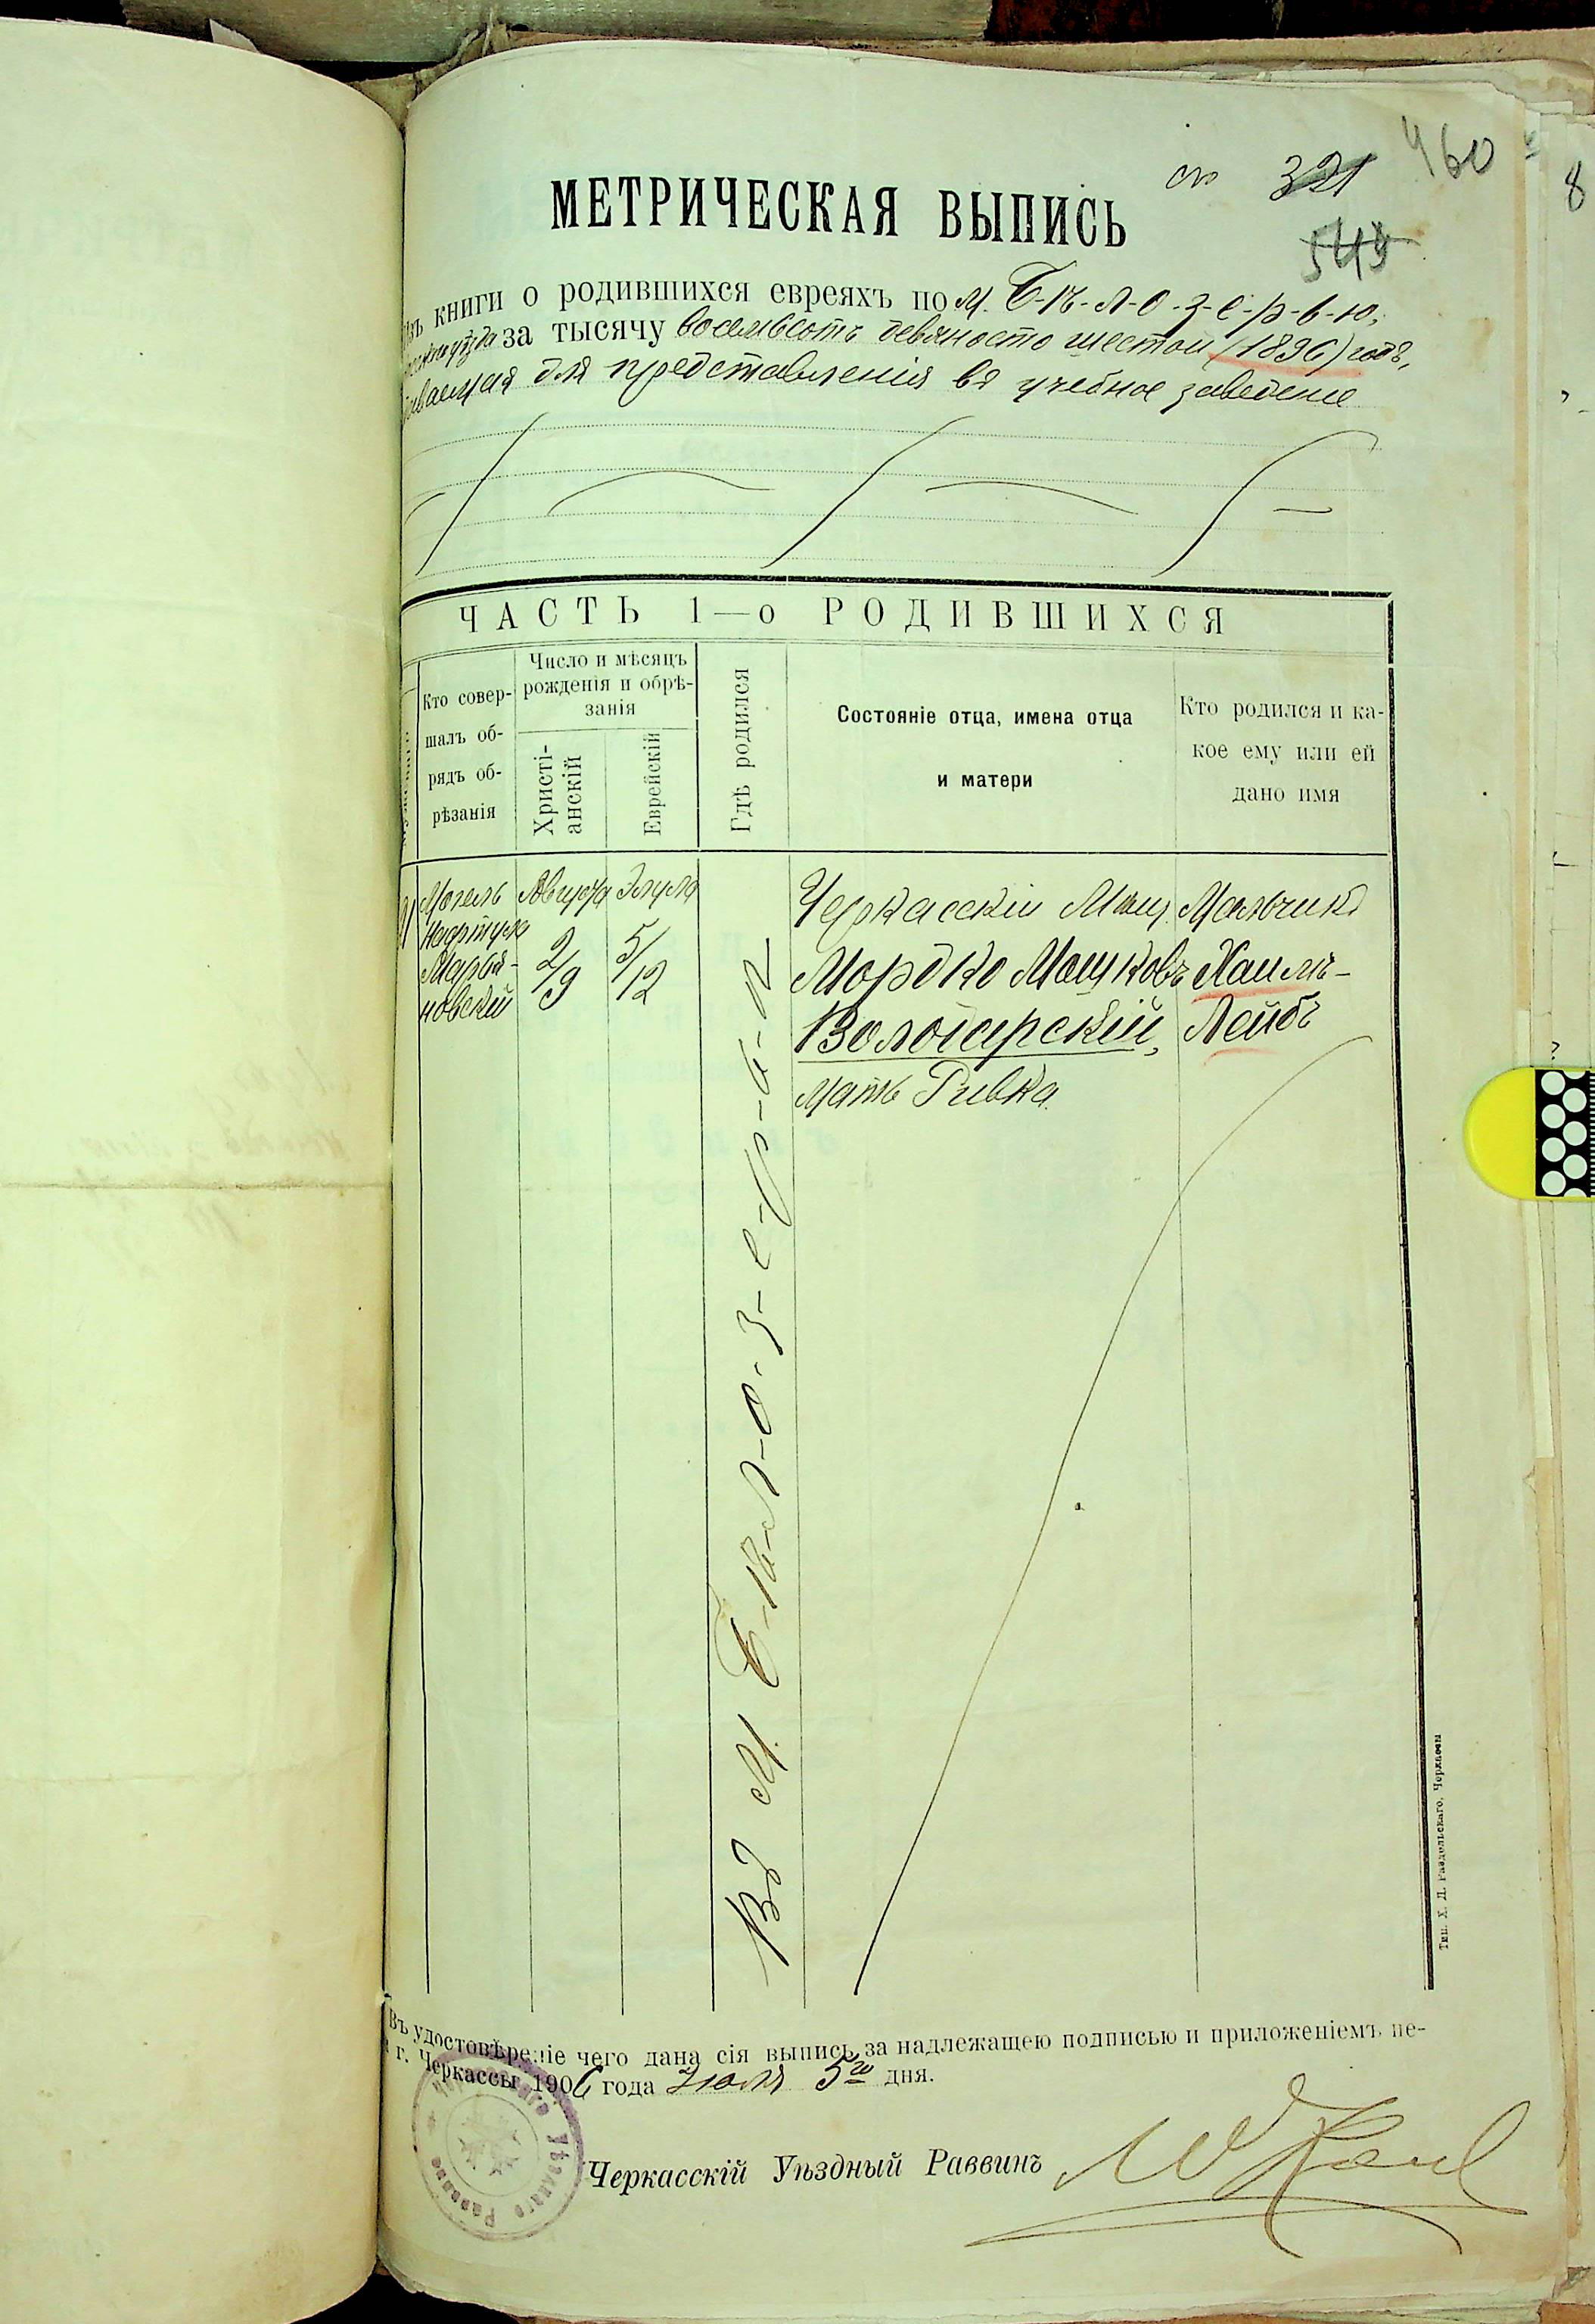 сп 321 460
543
8
МЕТРИЧЕСКАЯ ВЫПИСЬ
книги о родившихся евреяхъ по м. Б-ѣ-л-о-з-е-р-ь-ю,
за тысячу восемьсотъ девяносто шестой (1896) годъ,
для представленія въ учебное заведеніе
ЧАСТЬ 1—о РОДИВШИХСЯ
Кто совер-
шалъ об-
рядъ об-
рѣзанія
Число и мѣсяцъ
рожденія и обрѣ-
занія
Христі-
анскій
Еврейскій
Гдѣ родился
Состояніе отца, имена отца
и матери
Кто родился и ка-
кое ему или ей
дано имя
Могель
Нафтула
Марья-
новскій
Августа
2/9
Элула
5/12
Въ М. Б-ѣ-л-о-з-е-р-ь-ѣ
Черкасскій Мѣщ.
Мордко Мошковъ
Волотарскій,
Мать Ривка.
Мальчикъ
Хаимъ-
Лейбъ
Тип. Х. Д. Раздольскаго, Черкассы
Въ удостовѣреніе чего дана сія выпись за надлежащею подписью и приложеніемъ пе-
г. Черкассы 1906 года Іюля 5го дня.
Черкасскій Уѣздный Раввинъ
Уѣзднаго Раввина